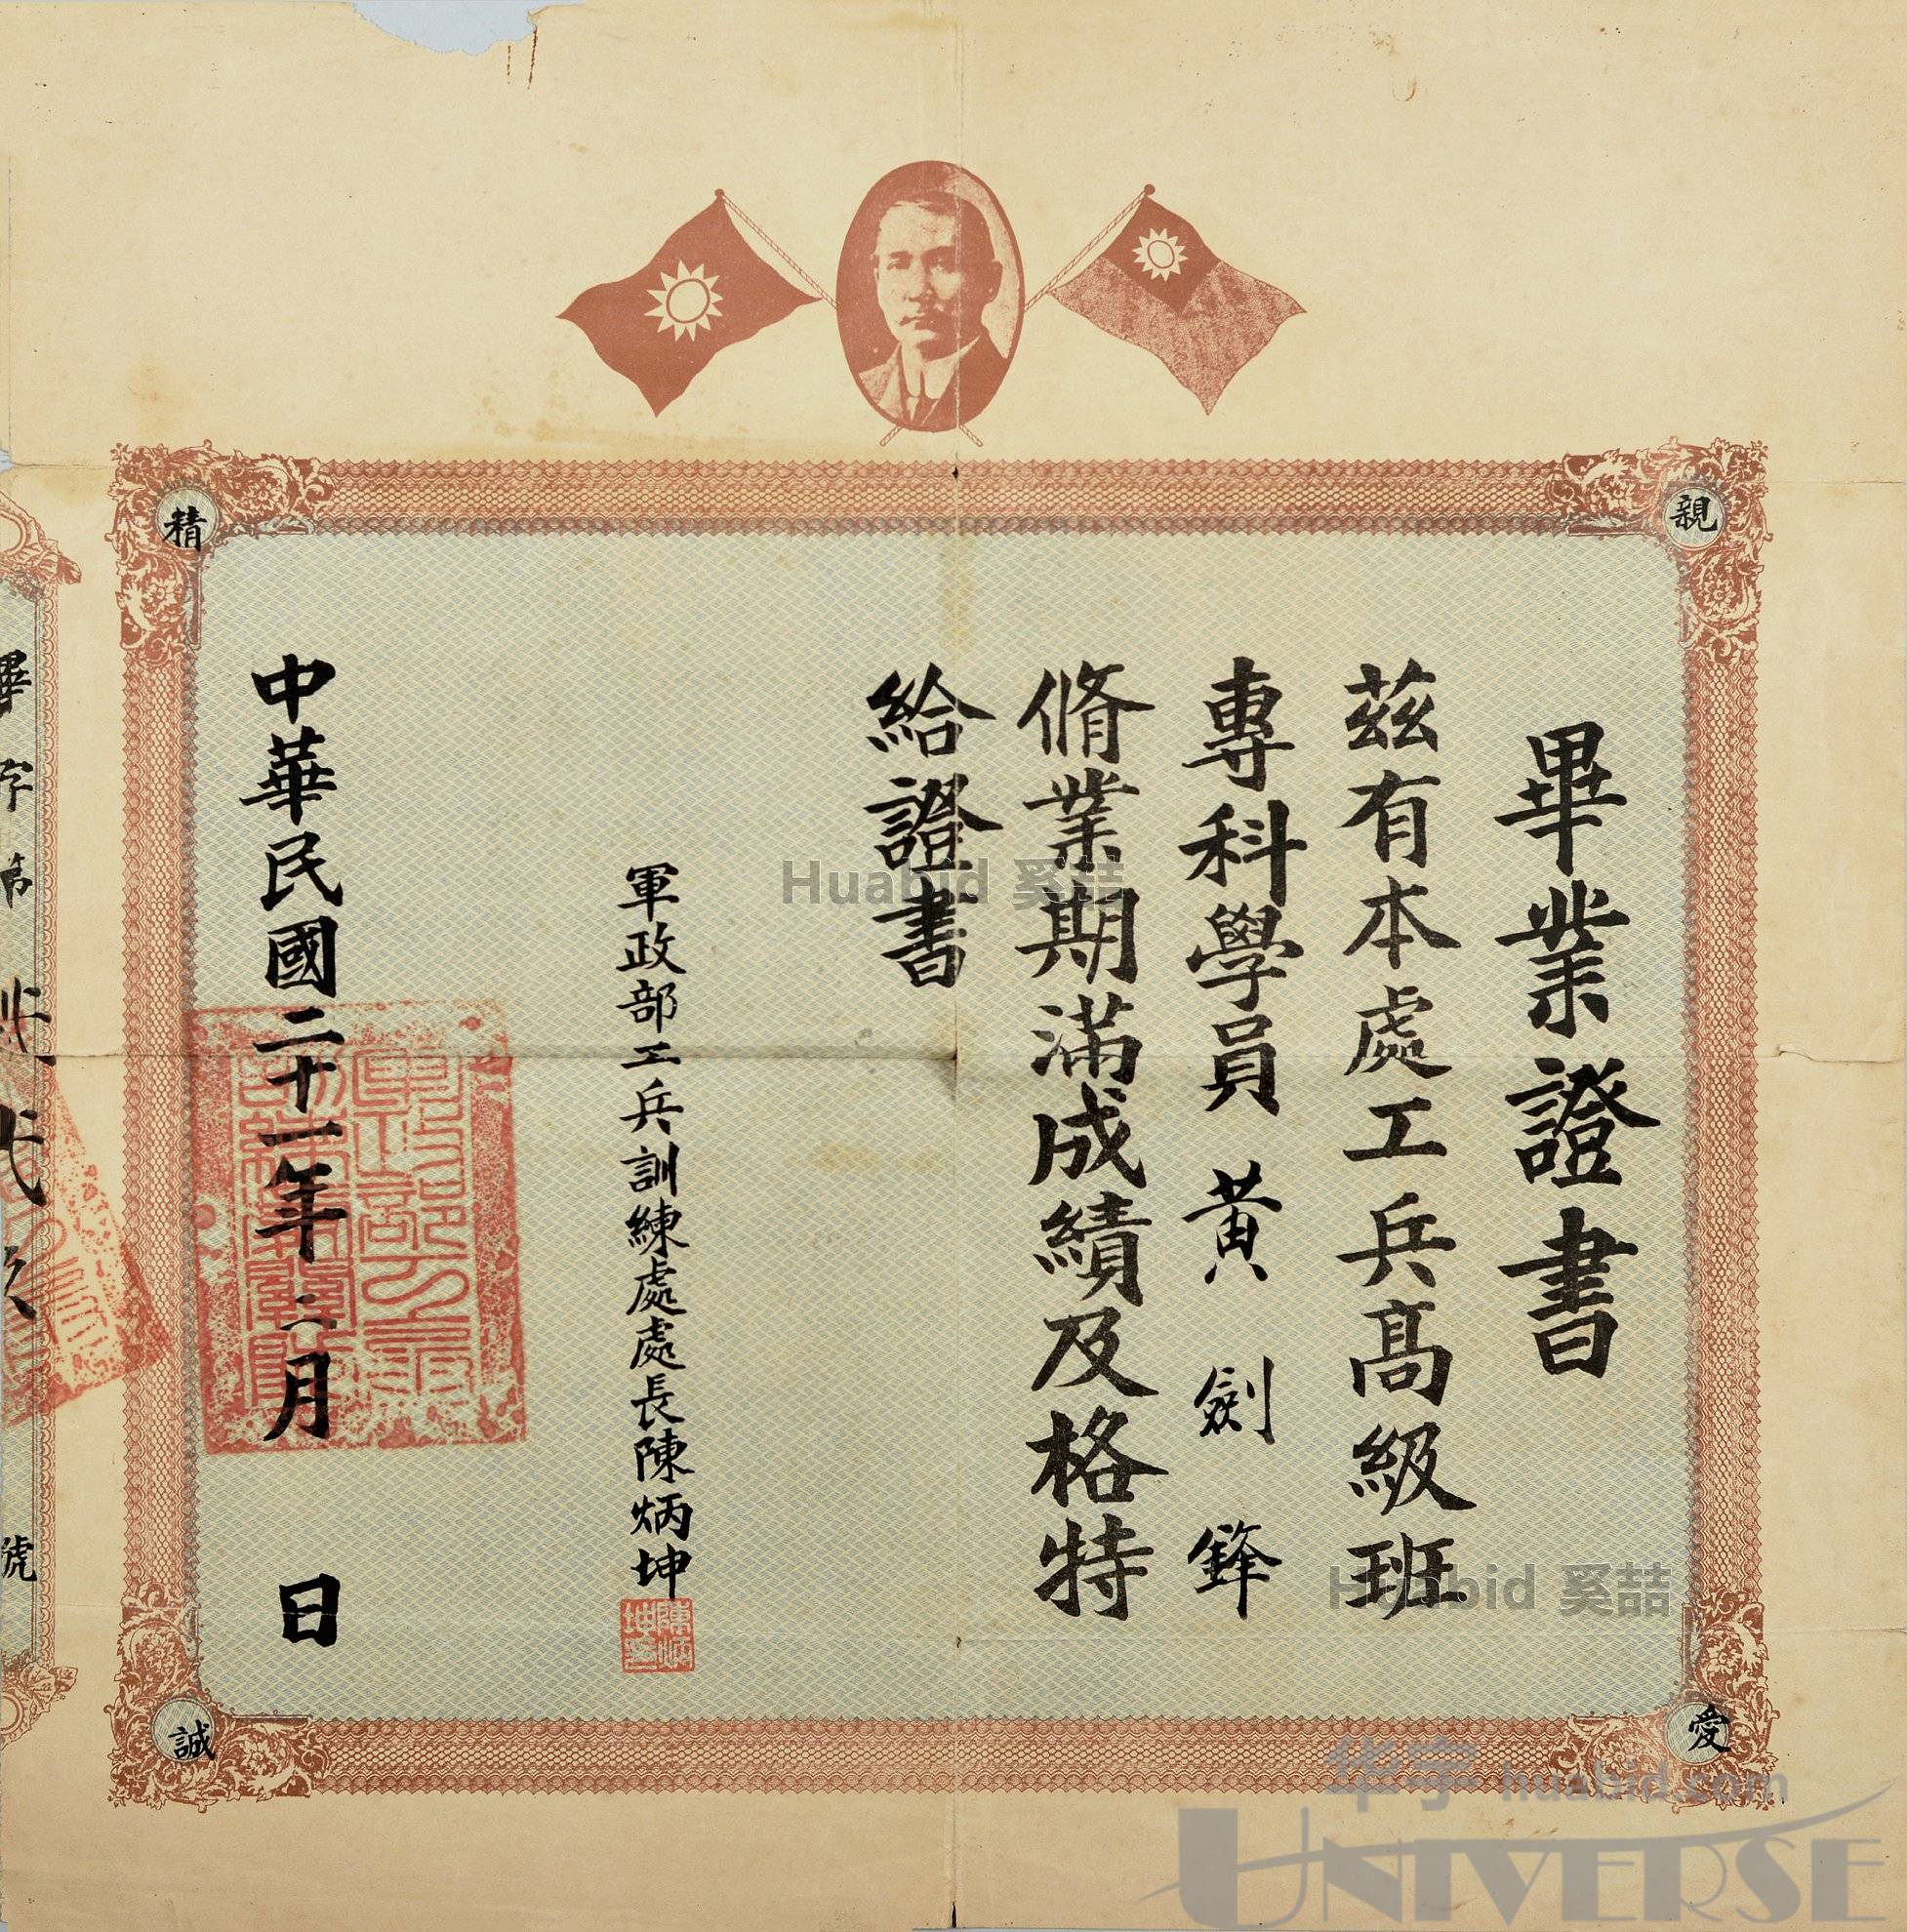 親愛精誠
畢業證書
茲有本處工兵高級班
專科學員黃劍鋒
脩業期滿成績及格特
給證書
軍政部工兵訓練處處長陳炳坤
陳炳坤
中華民國二十一年二月 日
畢字第
號
Huabid 奚喆
Huabid 奚喆
华宇 huabid.com
UNIVERSE